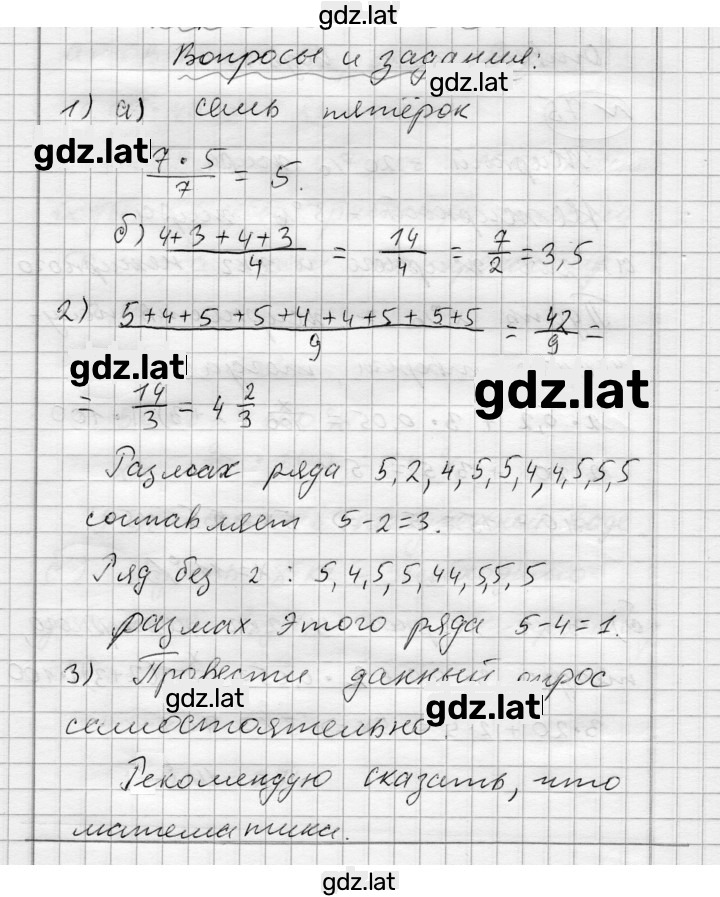 gdz.lat
Вопросы и задания:
gdz.lat
1) а) семь пятёрок
gdz.lat
7 · 5 / 7 = 5.
б) 4+3+4+3 / 4 = 14/4 = 7/2 = 3,5
2) 5+4+5+5+4+4+5+5+5 / 9 = 42/9 =
gdz.lat
= 14/3 = 4 2/3
gdz.lat
Размах ряда 5,2,4,5,5,4,4,5,5,5
составляет 5-2=3.
Ряд без 2 : 5,4,5,5,44,5,5,5
размах этого ряда 5-4=1.
3) Провести данный опрос
gdz.lat
самостоятельно.
gdz.lat
Рекомендую сказать, что
математика.
gdz.lat